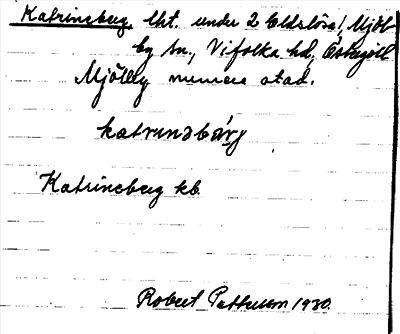 Katrineberg, lht. under 2 Eldslösa!, Mjöl-
by sn., Vifolka hd, Östergötl
Mjölby numera stad.
katrinəbærj
Katrineberg kb
Robert Pettersson 1930.